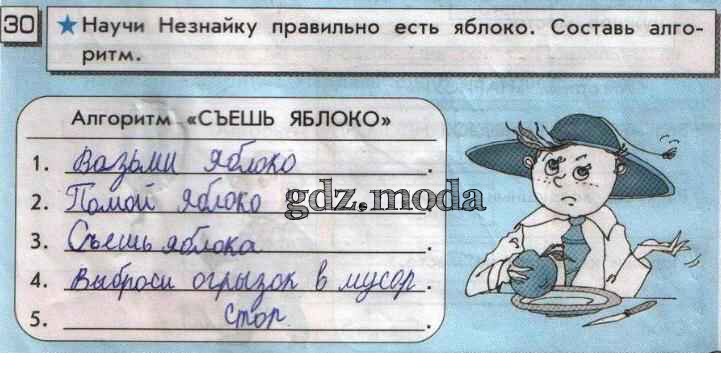 30
★ Научи Незнайку правильно есть яблоко. Составь алго-
ритм.
Алгоритм «СЪЕШЬ ЯБЛОКО»
1. Возьми яблоко.
2. Помой яблоко.
gdz.moda
3. Съешь яблока.
4. Выброси огрызок в мусор.
5. стор.